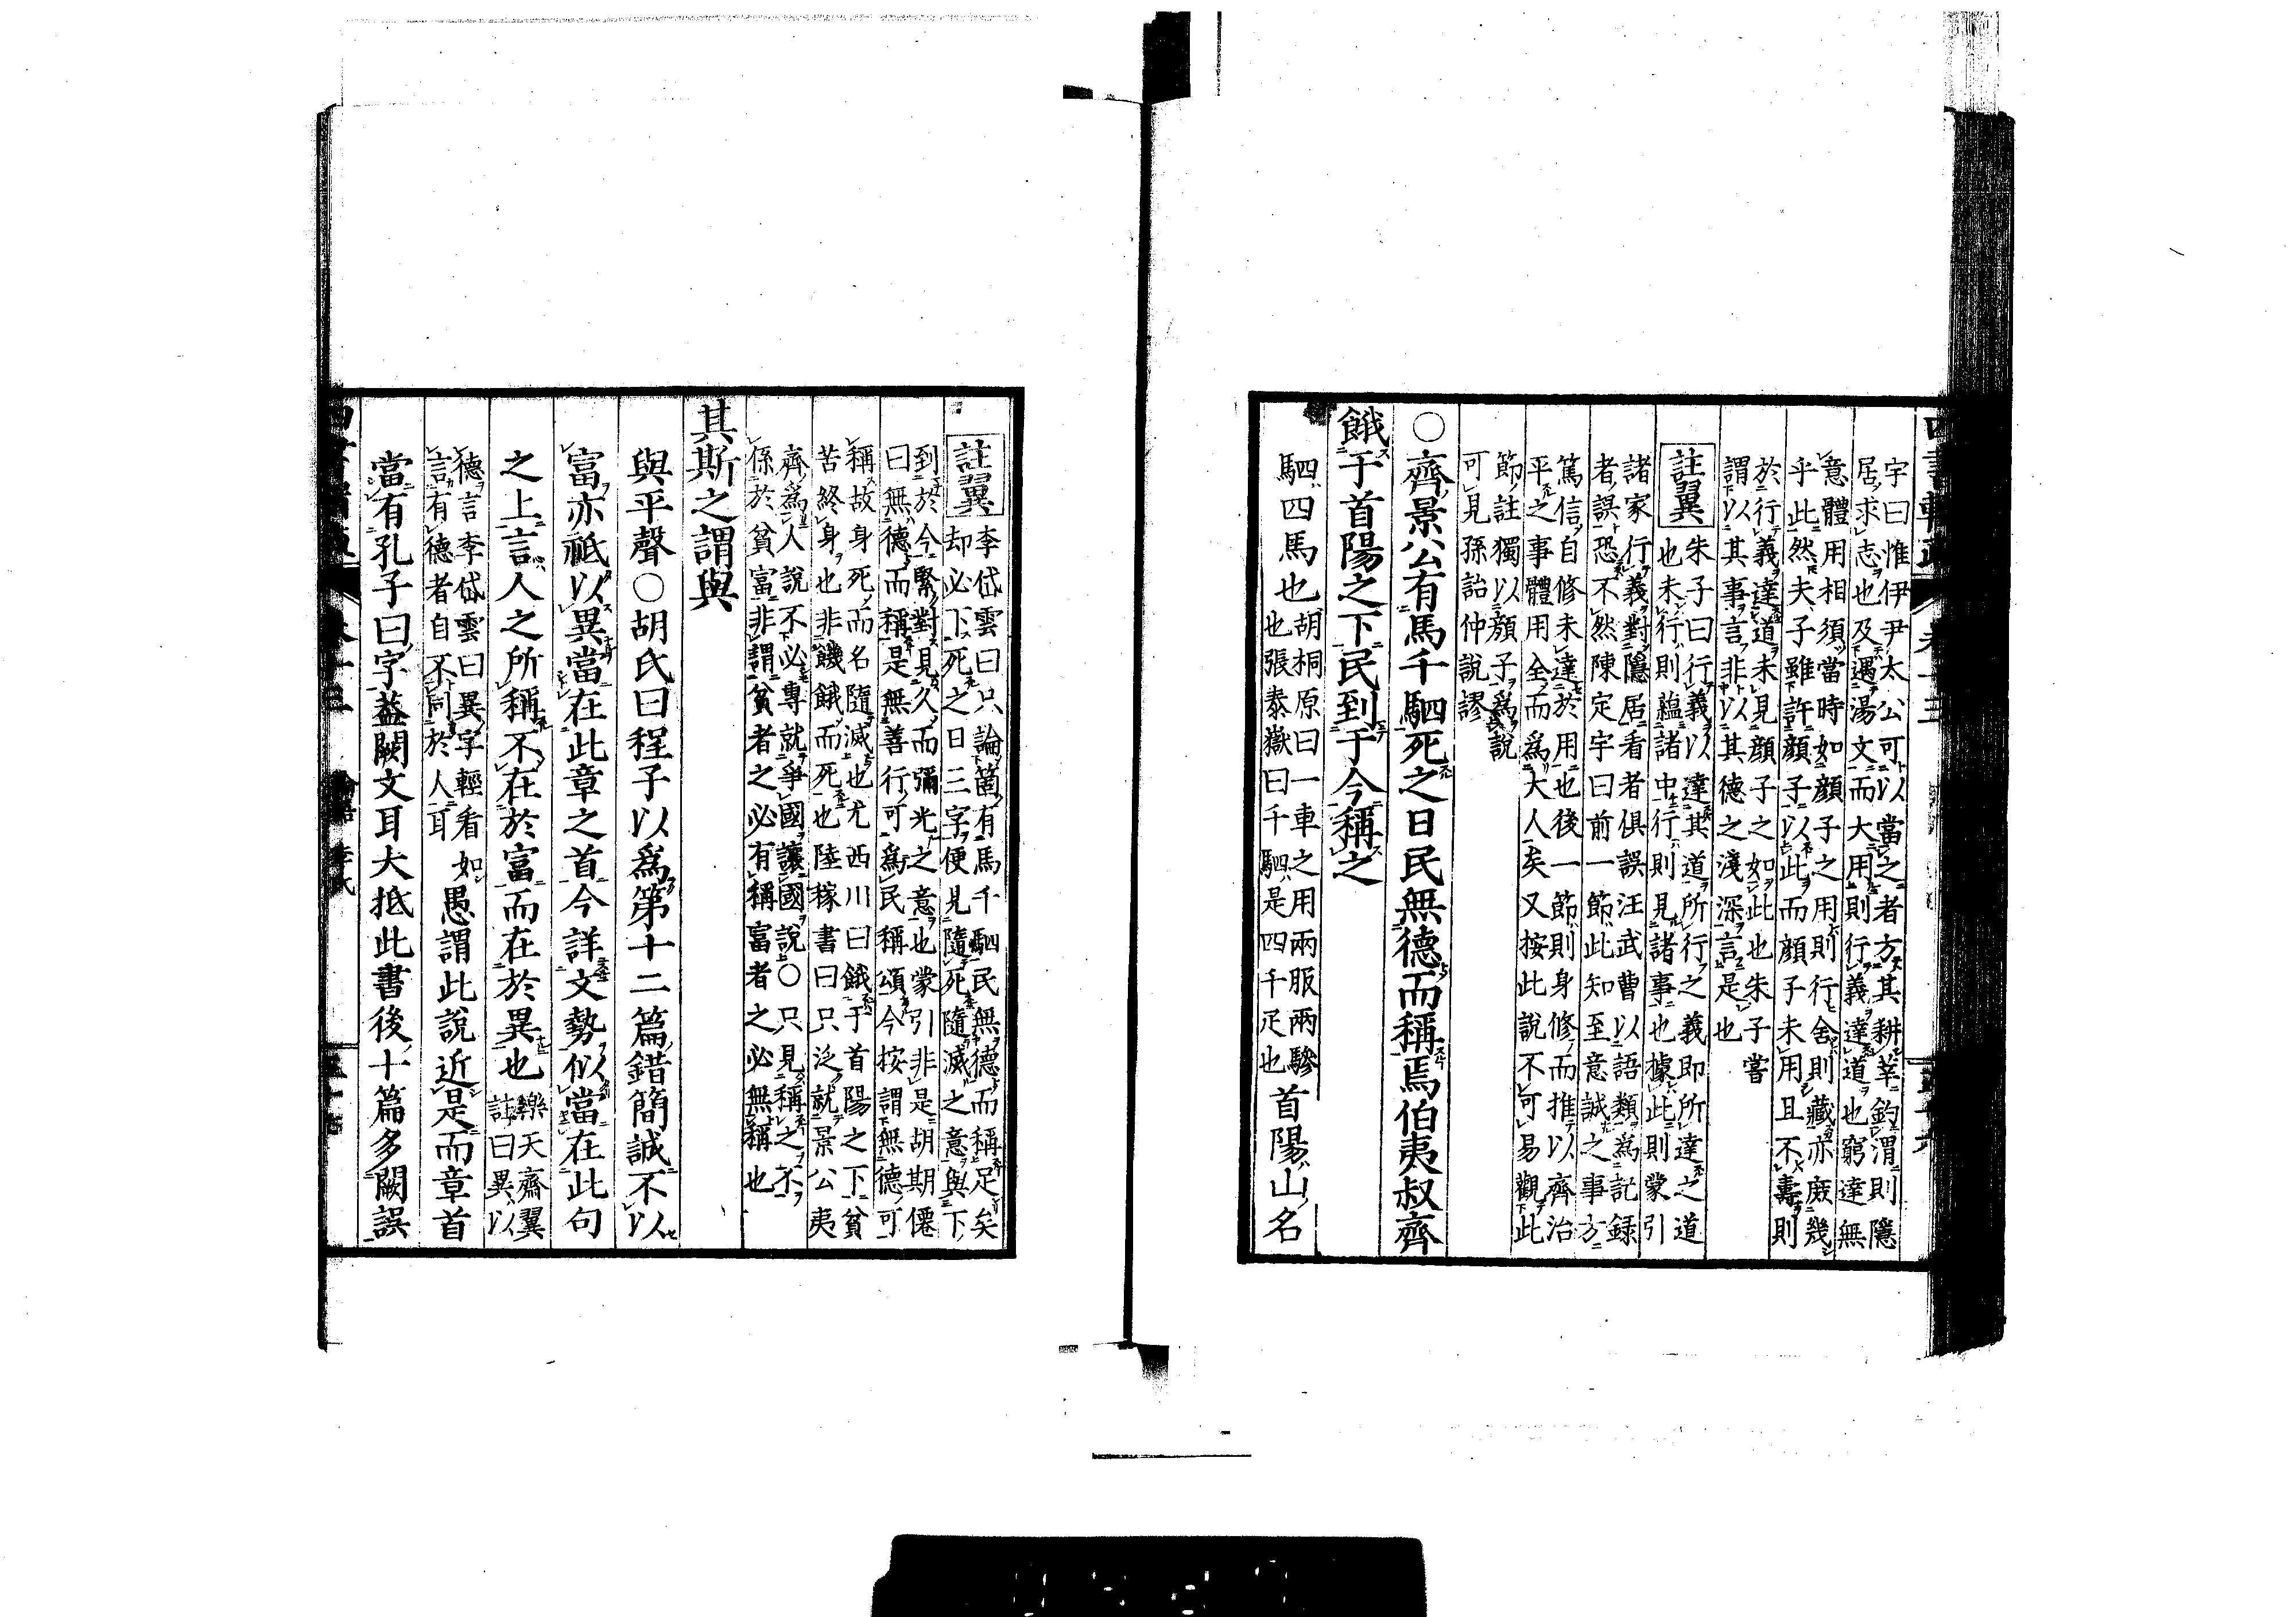 字曰惟伊尹太公可以當之者方其耕莘釣渭則隱
居求志也及遇湯文而大用則行義達道也窮達無
意體用相須當時如顏子之用則行舍則藏亦庶幾
乎此然夫子雖許顏子以此而顏子未用且不壽則
於行義達道未見顏子之如此也朱子嘗
謂以其事言非以其德之淺深言是也
註翼
朱子曰行義以達其道所行之義即所達之道
也未行則蘊諸中行則見諸事也據此則蒙引
諸家行義對隱居看者俱誤汪武曹以語類爲記録
者誤恐不然陳定宇曰前一節此知至意誠之事方
篤信自修未達於用也後一節則身修而推以齊治
平之事體用全而爲大人矣又按此說不可易觀此
節註獨以顏子爲說
可見孫詒仲說謬
○齊景公有馬千駟死之日民無德而稱焉伯夷叔齊
餓于首陽之下民到于今稱之
駟四馬也
胡桐原曰一車之用兩服兩驂
也張泰嶽曰千駟是四千疋也
首陽山名
註翼
李岱雲曰只論箇有馬千駟民無德而稱足矣
却必下死之日三字便見隨死隨滅之意與下
到於今緊對見久而彌光之意也蒙引非是胡期僊
曰無德而稱是無善行可爲民稱頌今按謂無德可
稱故身死而名隨滅也尤西川曰餓于首陽之下貧
苦終身也非饑餓而死也陸稼書曰只泛就景公夷
齊爲人說不必專就爭國讓國說○只見稱之不
係於貧富非謂貧者之必有稱富者之必無稱也
其斯之謂與
與平聲○胡氏曰程子以爲第十二篇錯簡誠不以
富亦祗以異當在此章之首今詳文勢似當在此句
之上言人之所稱不在於富而在於異也
樂天齋翼
註曰異以
德言李岱雲曰異字輕看如
言有德者自不同於人耳
愚謂此說近是而章首
當有孔子曰字蓋闕文耳大抵此書後十篇多闕誤